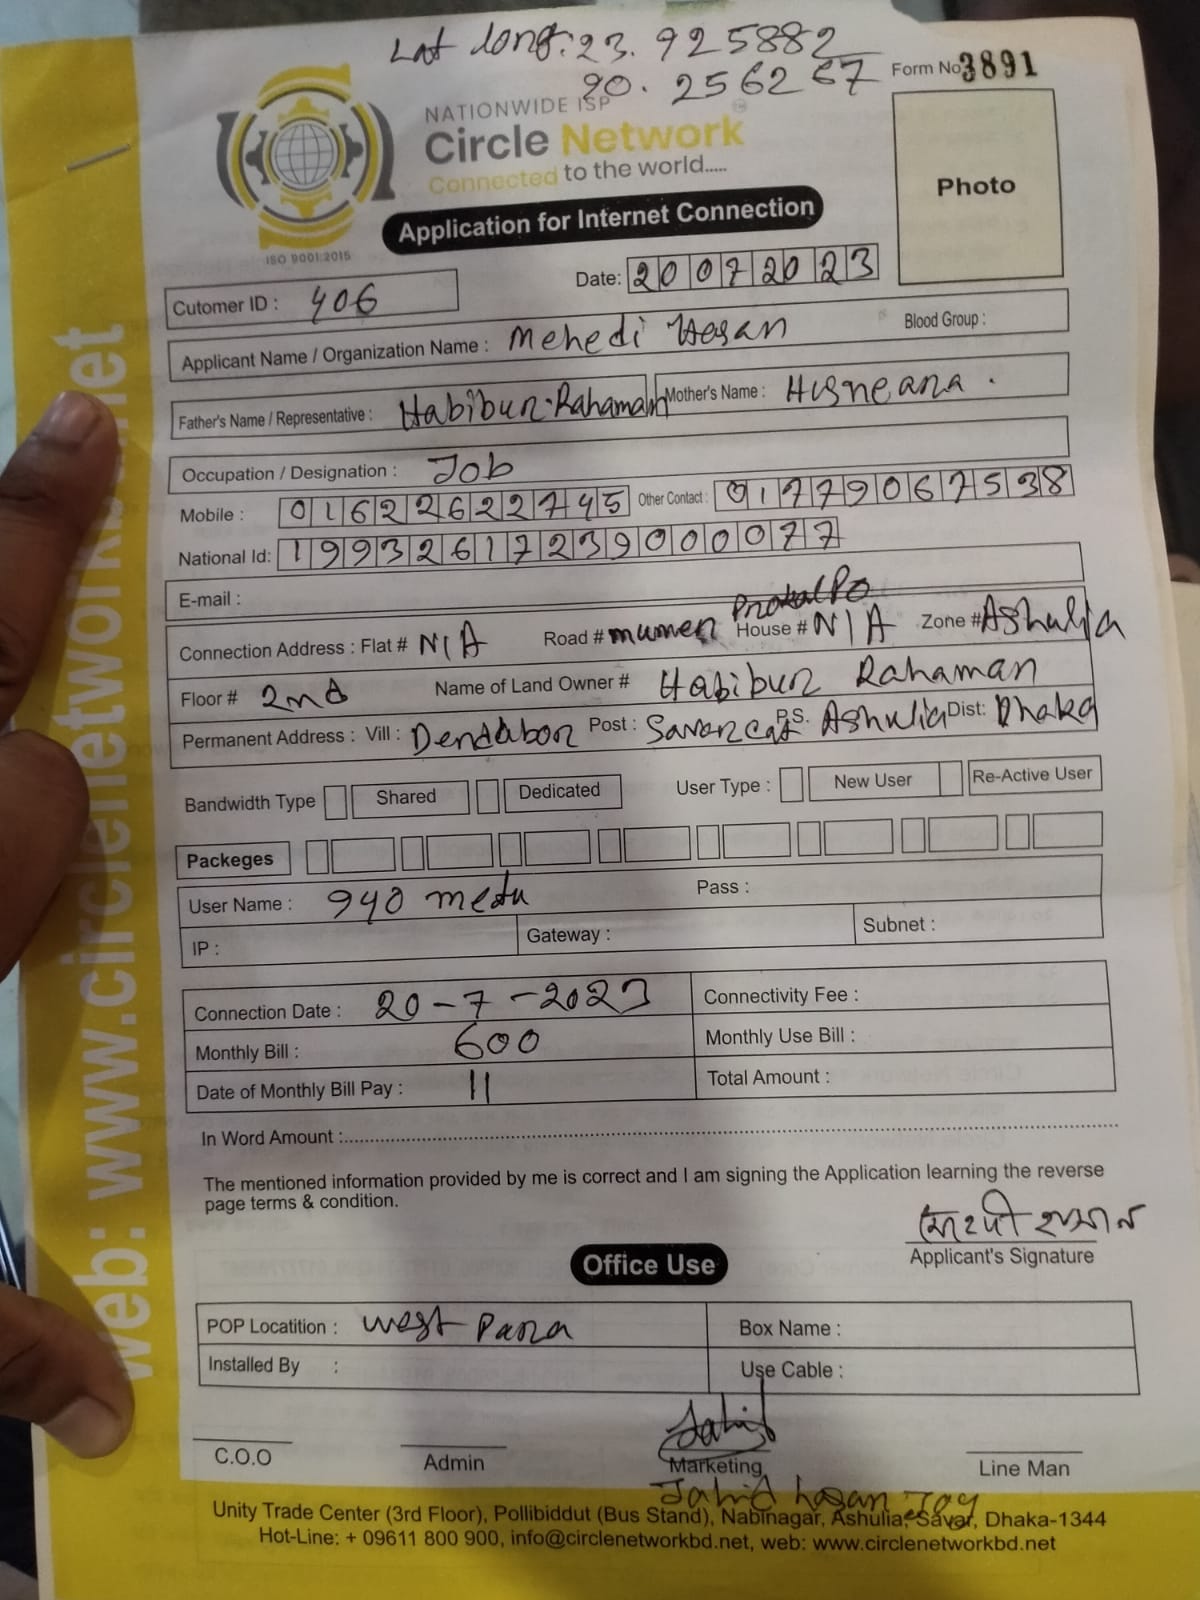 Lat long: 23. 925882
90. 256267
Form No 3891
NATIONWIDE ISP
Circle Network
Connected to the world.....
ISO 9001:2015
Application for Internet Connection
Photo
Date: 20072023
Cutomer ID : 406
Applicant Name / Organization Name : Mehedi Hasan Blood Group :
Father's Name / Representative : Habibur Rahaman Mother's Name : Husneara .
Occupation / Designation : Job
Mobile : 01622622745 Other Contact : 01779067538
National Id: 19932617239000077
E-mail :
Connection Address : Flat # N/A Road # mumen House # N/A Zone # Ashulia
Floor # 2nd Name of Land Owner # Habibur Rahaman
Permanent Address : Vill : Dendabor Post : Savar cat P.S. Ashulia Dist: Dhaka
Bandwidth Type Shared Dedicated User Type : New User Re-Active User
Packeges
User Name : 940 Pass :
IP : Gateway : Subnet :
Connection Date : 20-7-2023 Connectivity Fee :
Monthly Bill : 600 Monthly Use Bill :
Date of Monthly Bill Pay : 11 Total Amount :
In Word Amount :
The mentioned information provided by me is correct and I am signing the Application learning the reverse
page terms & condition.
মেহেদী হাসান
Applicant's Signature
Office Use
POP Locatition : West Para Box Name :
Installed By : Use Cable :
Jahid
C.O.O Admin Marketing Line Man
Jahid hasan Joy
Unity Trade Center (3rd Floor), Pollibiddut (Bus Stand), Nabinagar, Ashulia, Savar, Dhaka-1344
Hot-Line: + 09611 800 900, info@circlenetworkbd.net, web: www.circlenetworkbd.net
web: www.circlenetworkbd.net